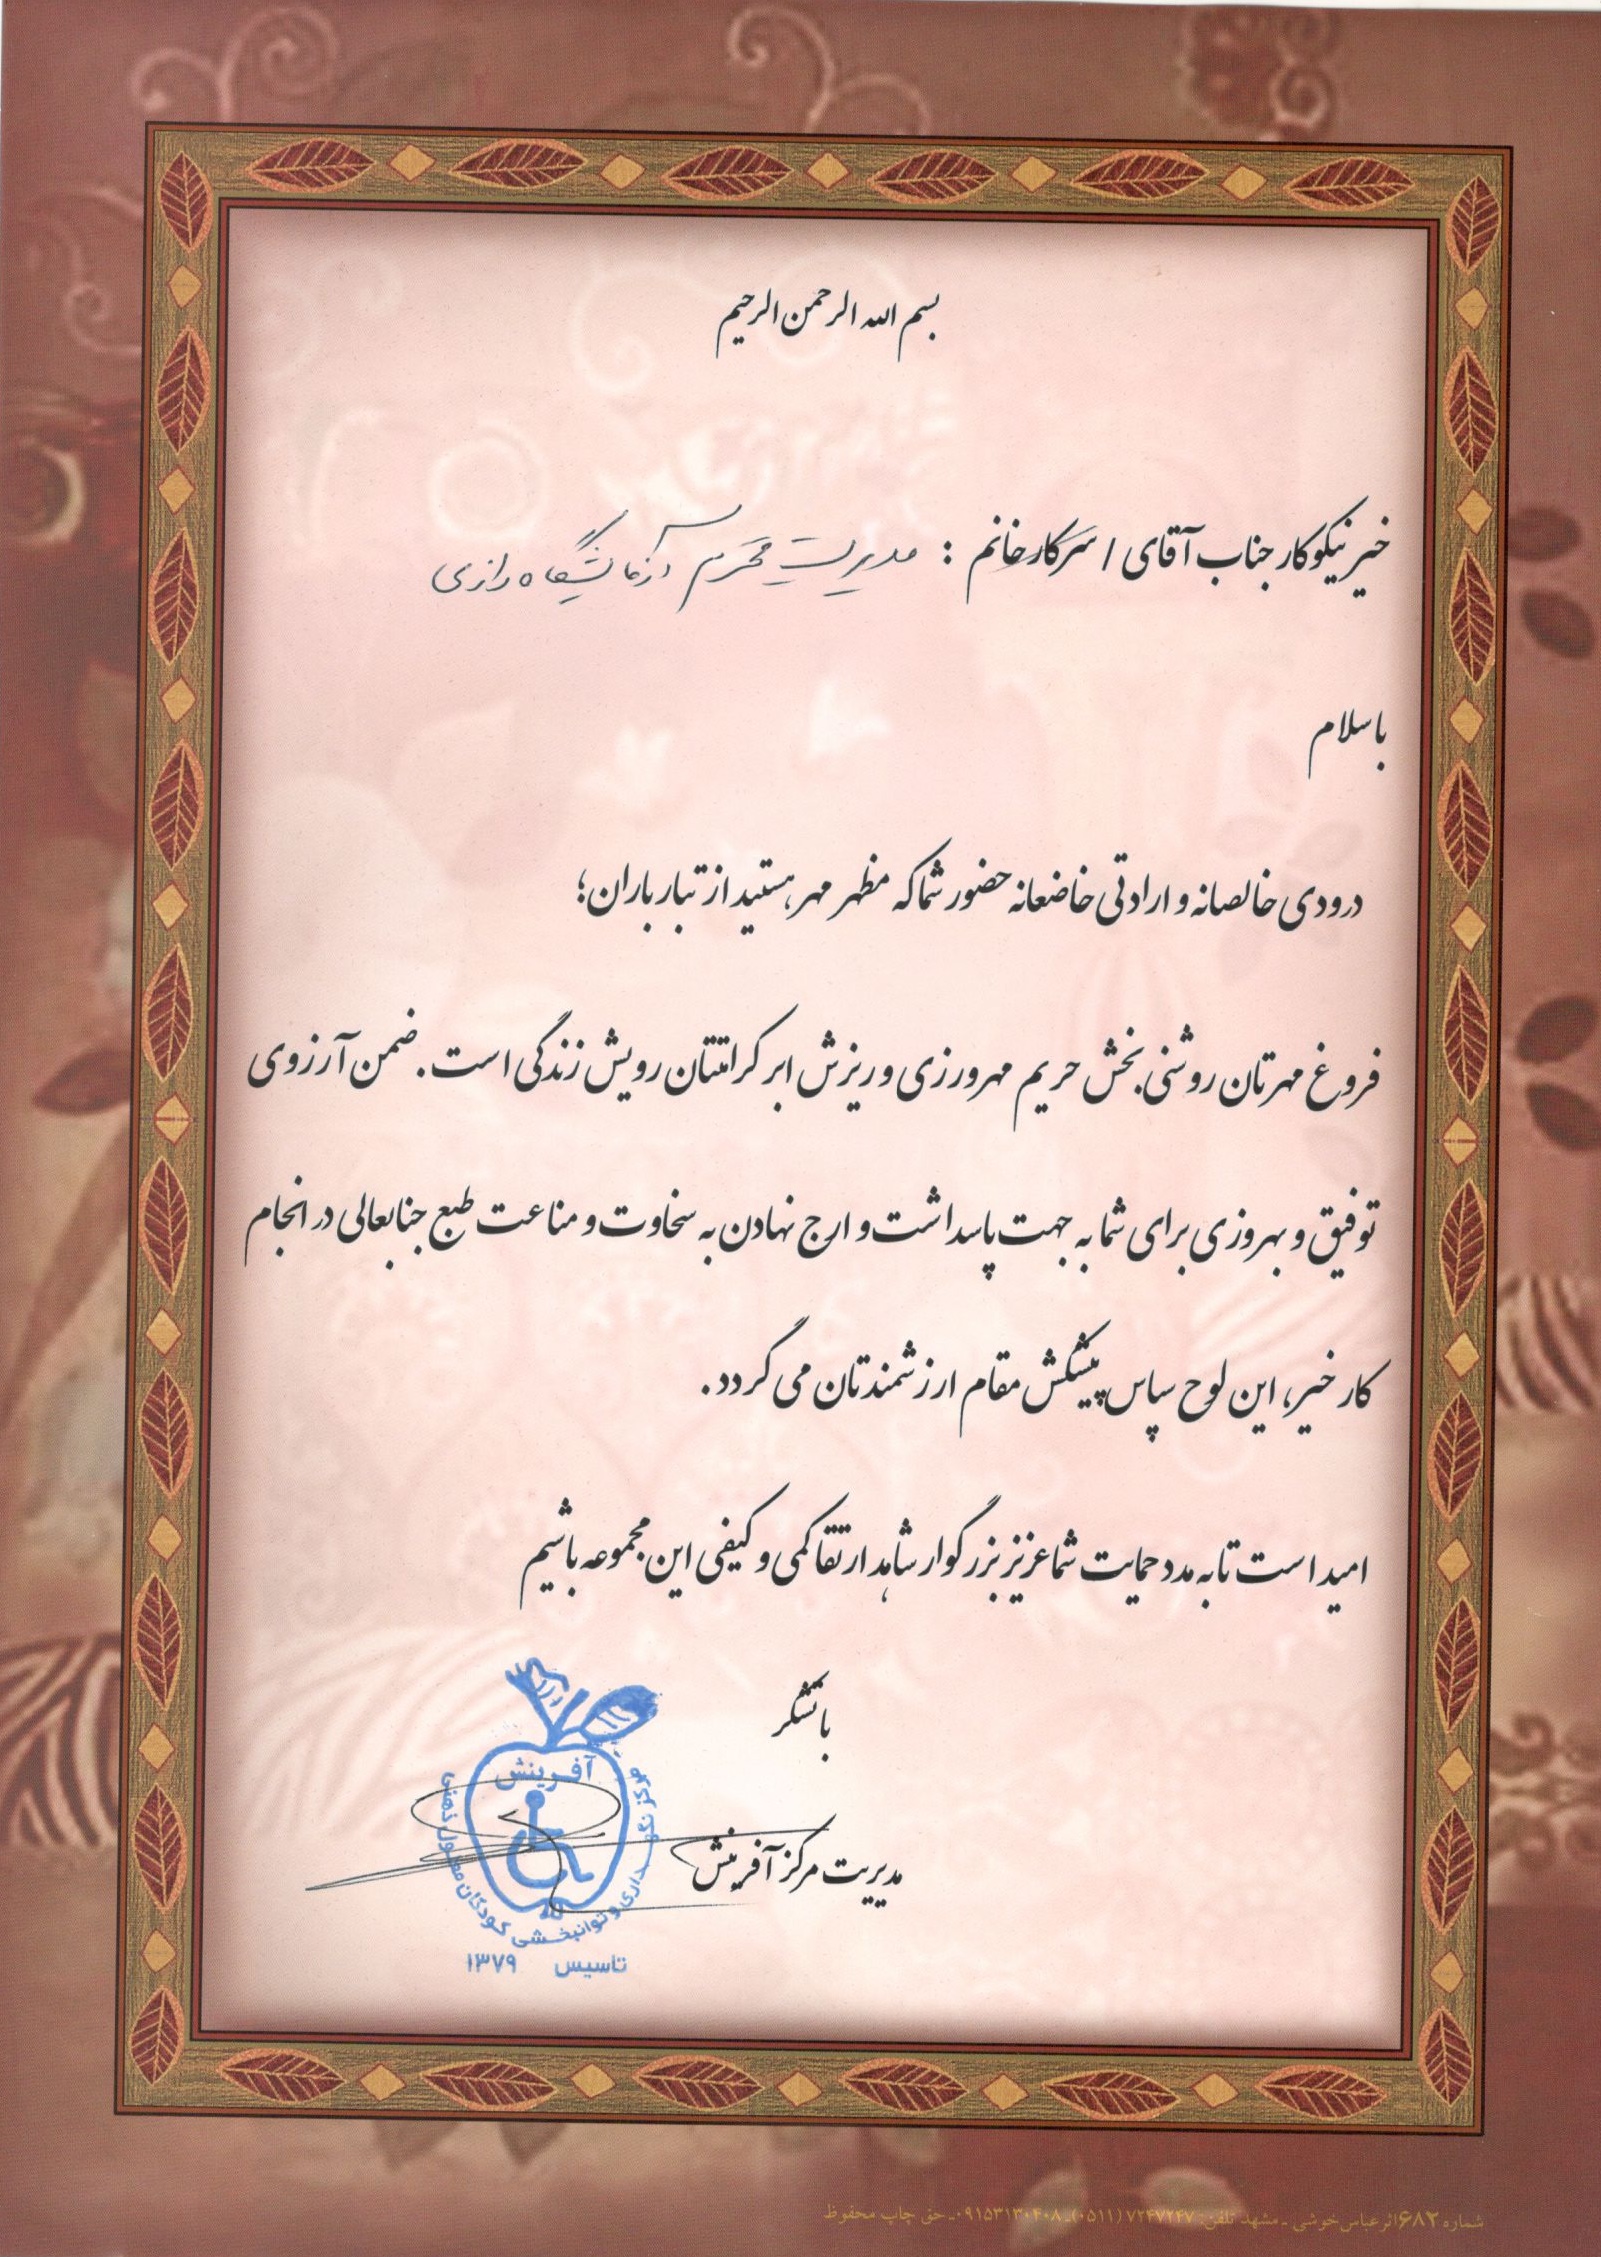 بسم الله الرحمن الرحیم
خیر نیکوکار جناب آقای / سرکار خانم : مدیریت محترم آزمایشگاه رازی
با سلام
درودی خالصانه و ارادتی خاضعانه حضور شما که مظهر مهر هستید از تبار باران؛
فروغ مهرتان روشنی بخش حریم مهرورزی و ریزش ابر کرامتتان رویش زندگی است. ضمن آرزوی
توفیق و بهروزی برای شما به جهت پاسداشت و ارج نهادن به سخاوت و مناعت طبع جنابعالی در انجام
کار خیر، این لوح سپاس پیشکش مقام ارزشمندتان می گردد.
امید است تا به مدد حمایت شما عزیز بزرگوار شاهد ارتقا کمی و کیفی این مجموعه باشیم
با تشکر
مدیریت مرکز آفرینش
آفرینش
مرکز نگهداری و توانبخشی کودکان معلول ذهنی
تاسیس ۱۳۷۹
شماره ۶۸۲ اثر عباس خوشی - مشهد تلفن: ۷۲۴۷۲۴۷ (۰۵۱۱) - ۰۹۱۵۳۱۳۰۴۰۸ - حق چاپ محفوظ